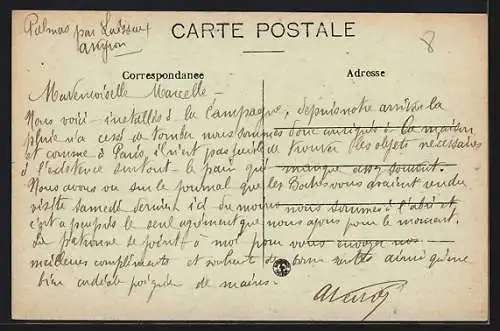 Palmas par Laissac
Aveyron
CARTE POSTALE
8
Correspondance
Adresse
Mademoiselle Marcelle -
Nous voici installés à la Campagne, depuis notre arrivée la
pluie n'a cessé de tomber nous sommes donc à la maison
et comme à Paris, il n'est pas facile de trouver les objets nécessaires
à l'existence surtout le pain qui manque assez souvent.
Nous avons vu sur le journal que les Boches vous avaient rendu
visite samedi dernier ici du moins nous sommes à l'abri et
c'est à peu près le seul agrément que nous ayons pour le moment.
La patronne se joint à moi pour vous envoyer nos
meilleurs compliments et souhaits de bonne santé ainsi qu'une
bien cordiale poignée de mains.